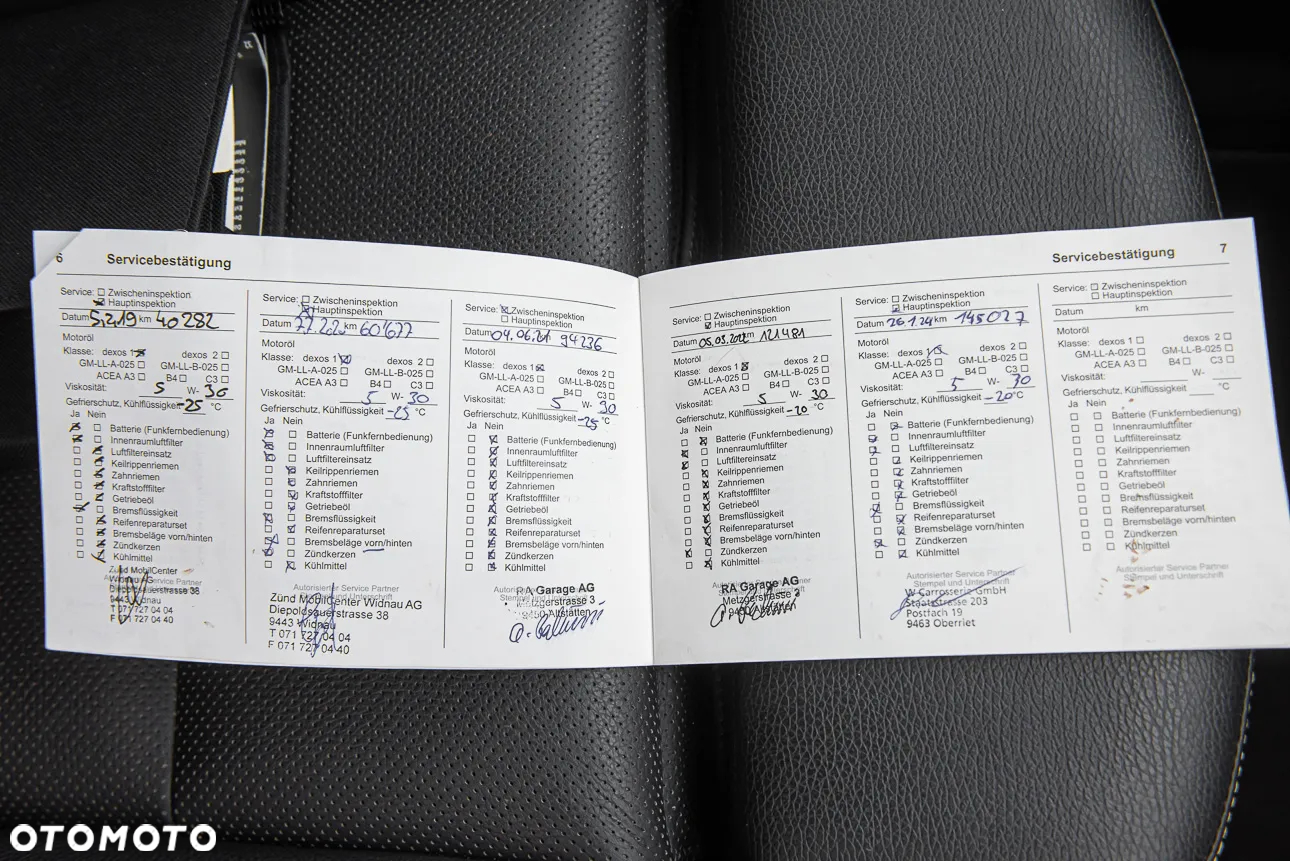 6
Servicebestätigung
Service: Zwischeninspektion
Hauptinspektion
Datum 5.2.19 km 40282
Motoröl
Klasse: dexos 1 dexos 2
GM-LL-A-025 GM-LL-B-025
ACEA A3 B4 C3
Viskosität: 5 W- 30
Gefrierschutz, Kühlflüssigkeit -25 °C
Ja Nein
Batterie (Funkfernbedienung)
Innenraumluftfilter
Luftfiltereinsatz
Keilrippenriemen
Zahnriemen
Kraftstofffilter
Getriebeöl
Bremsflüssigkeit
Reifenreparaturset
Bremsbeläge vorn/hinten
Zündkerzen
Kühlmittel
Autorisierter Service Partner
Zünd MobilCenter
Widnau AG
Diepoldsauerstrasse 38
9443 Widnau
T 071 727 04 04
F 071 727 04 40
Service: Zwischeninspektion
Hauptinspektion
Datum km 60'677
Motoröl
Klasse: dexos 1 dexos 2
GM-LL-A-025 GM-LL-B-025
ACEA A3 B4 C3
Viskosität: 5 W- 30
Gefrierschutz, Kühlflüssigkeit -25 °C
Ja Nein
Batterie (Funkfernbedienung)
Innenraumluftfilter
Luftfiltereinsatz
Keilrippenriemen
Zahnriemen
Kraftstofffilter
Getriebeöl
Bremsflüssigkeit
Reifenreparaturset
Bremsbeläge vorn/hinten
Zündkerzen
Kühlmittel
Autorisierter Service Partner
Stempel und Unterschrift
Zünd MobilCenter Widnau AG
Diepoldsauerstrasse 38
9443 Widnau
T 071 727 04 04
F 071 727 04 40
Service: Zwischeninspektion
Hauptinspektion
Datum 04.06.21 94236
Motoröl
Klasse: dexos 1 dexos 2
GM-LL-A-025 GM-LL-B-025
ACEA A3 B4 C3
Viskosität: 5 W- 30
Gefrierschutz, Kühlflüssigkeit -25 °C
Ja Nein
Batterie (Funkfernbedienung)
Innenraumluftfilter
Luftfiltereinsatz
Keilrippenriemen
Zahnriemen
Kraftstofffilter
Getriebeöl
Bremsflüssigkeit
Reifenreparaturset
Bremsbeläge vorn/hinten
Zündkerzen
Kühlmittel
Autorisierter Service Partner
RA Garage AG
Metzgerstrasse 3
9450 Altstätten
Servicebestätigung
7
Service: Zwischeninspektion
Hauptinspektion
Datum km 121481
Motoröl
Klasse: dexos 1 dexos 2
GM-LL-A-025 GM-LL-B-025
ACEA A3 B4 C3
Viskosität: 5 W- 30
Gefrierschutz, Kühlflüssigkeit -20 °C
Ja Nein
Batterie (Funkfernbedienung)
Innenraumluftfilter
Luftfiltereinsatz
Keilrippenriemen
Zahnriemen
Kraftstofffilter
Getriebeöl
Bremsflüssigkeit
Reifenreparaturset
Bremsbeläge vorn/hinten
Zündkerzen
Kühlmittel
Autorisierter Service Partner
RA Garage AG
Metzgerstrasse 3
9450 Altstätten
Service: Zwischeninspektion
Hauptinspektion
Datum 26.1.24 km 145027
Motoröl
Klasse: dexos 1 dexos 2
GM-LL-A-025 GM-LL-B-025
ACEA A3 B4 C3
Viskosität: 5 W- 30
Gefrierschutz, Kühlflüssigkeit -20 °C
Ja Nein
Batterie (Funkfernbedienung)
Innenraumluftfilter
Luftfiltereinsatz
Keilrippenriemen
Zahnriemen
Kraftstofffilter
Getriebeöl
Bremsflüssigkeit
Reifenreparaturset
Bremsbeläge vorn/hinten
Zündkerzen
Kühlmittel
Autorisierter Service Partner
Stempel und Unterschrift
Carrosserie GmbH
Staatsstrasse 203
Postfach 19
9463 Oberriet
Service: Zwischeninspektion
Hauptinspektion
Datum km
Motoröl
Klasse: dexos 1 dexos 2
GM-LL-A-025 GM-LL-B-025
ACEA A3 B4 C3
Viskosität: W-
Gefrierschutz, Kühlflüssigkeit °C
Ja Nein
Batterie (Funkfernbedienung)
Innenraumluftfilter
Luftfiltereinsatz
Keilrippenriemen
Zahnriemen
Kraftstofffilter
Getriebeöl
Bremsflüssigkeit
Reifenreparaturset
Bremsbeläge vorn/hinten
Zündkerzen
Kühlmittel
Autorisierter Service Partner
Stempel und Unterschrift
OTOMOTO